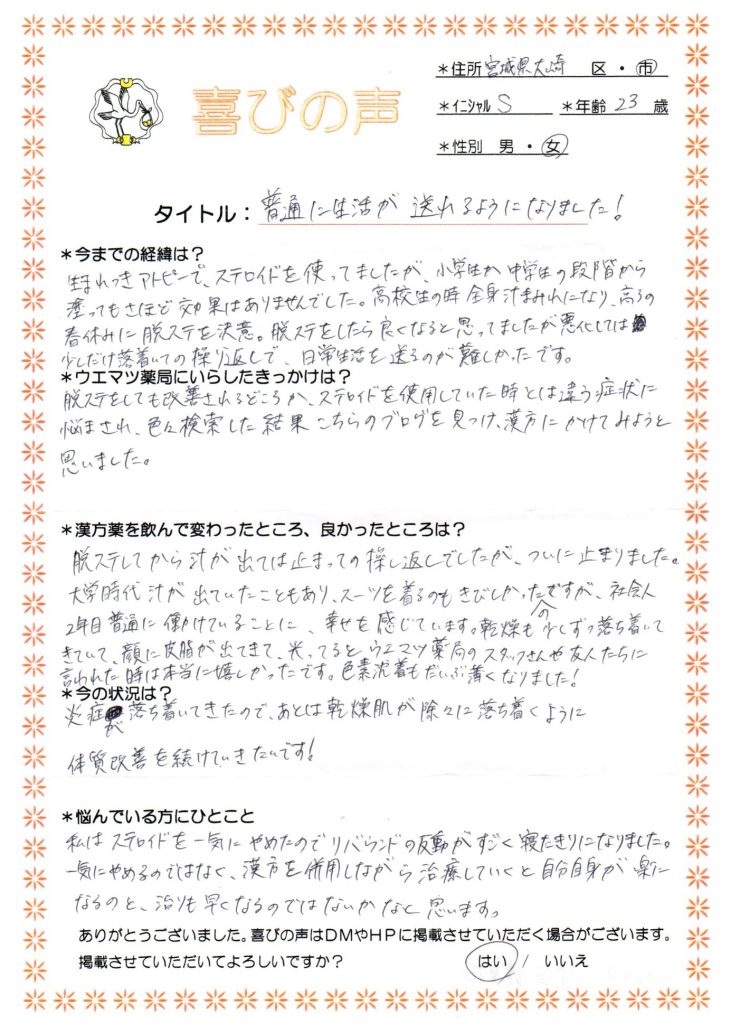 喜びの声
*住所 宮城県大崎 区・市
*イニシャル S *年齢 23 歳
*性別 男・女
タイトル：普通に生活が送れるようになりました！
*今までの経緯は？
生まれつきアトピーで、ステロイドを使ってましたが、小学生か中学生の段階から
塗ってもさほど効果はありませんでした。高校生の時全身汁まみれになり、高3の
春休みに脱ステを決意。脱ステをしたら良くなると思ってましたが悪化しては
少しだけ落着いての繰り返しで、日常生活を送るのが難しかったです。
*ウエマツ薬局にいらしたきっかけは？
脱ステをしても改善されるどころか、ステロイドを使用していた時とは違う症状に
悩まされ、色々検索した結果こちらのブログを見つけ、漢方にかけてみようと
思いました。
*漢方薬を飲んで変わったところ、良かったところは？
脱ステしてから汁が出ては止まっての操し返しでしたが、ついに止まりました。
大学時代汁が出ていたこともあり、スーツを着るのもきびしかったですが、社会人
2年目普通に働けていることに、幸せを感じています。乾燥も少しずつ落ち着いて
きていて、顔に皮脂が出てきて、光ってるとウエマツ薬局のスタッフさんや友人たちに
言われた時は本当に嬉しかったです。色素沈着もだいぶ薄くなりました！
*今の状況は？
炎症が落ち着いてきたので、あとは乾燥肌が除々に落ち着くように
体質改善を続けていきたいです！
*悩んでいる方にひとこと
私はステロイドを一気にやめたのでリバウンドの反動がすごく寝たきりになりました。
一気にやめるのではなく、漢方を併用しながら治療していくと自分自身が楽に
なるのと、治りも早くなるのではないかなと思います。
ありがとうございました。喜びの声はDMやHPに掲載させていただく場合がございます。
掲載させていただいてよろしいですか？ はい / いいえ